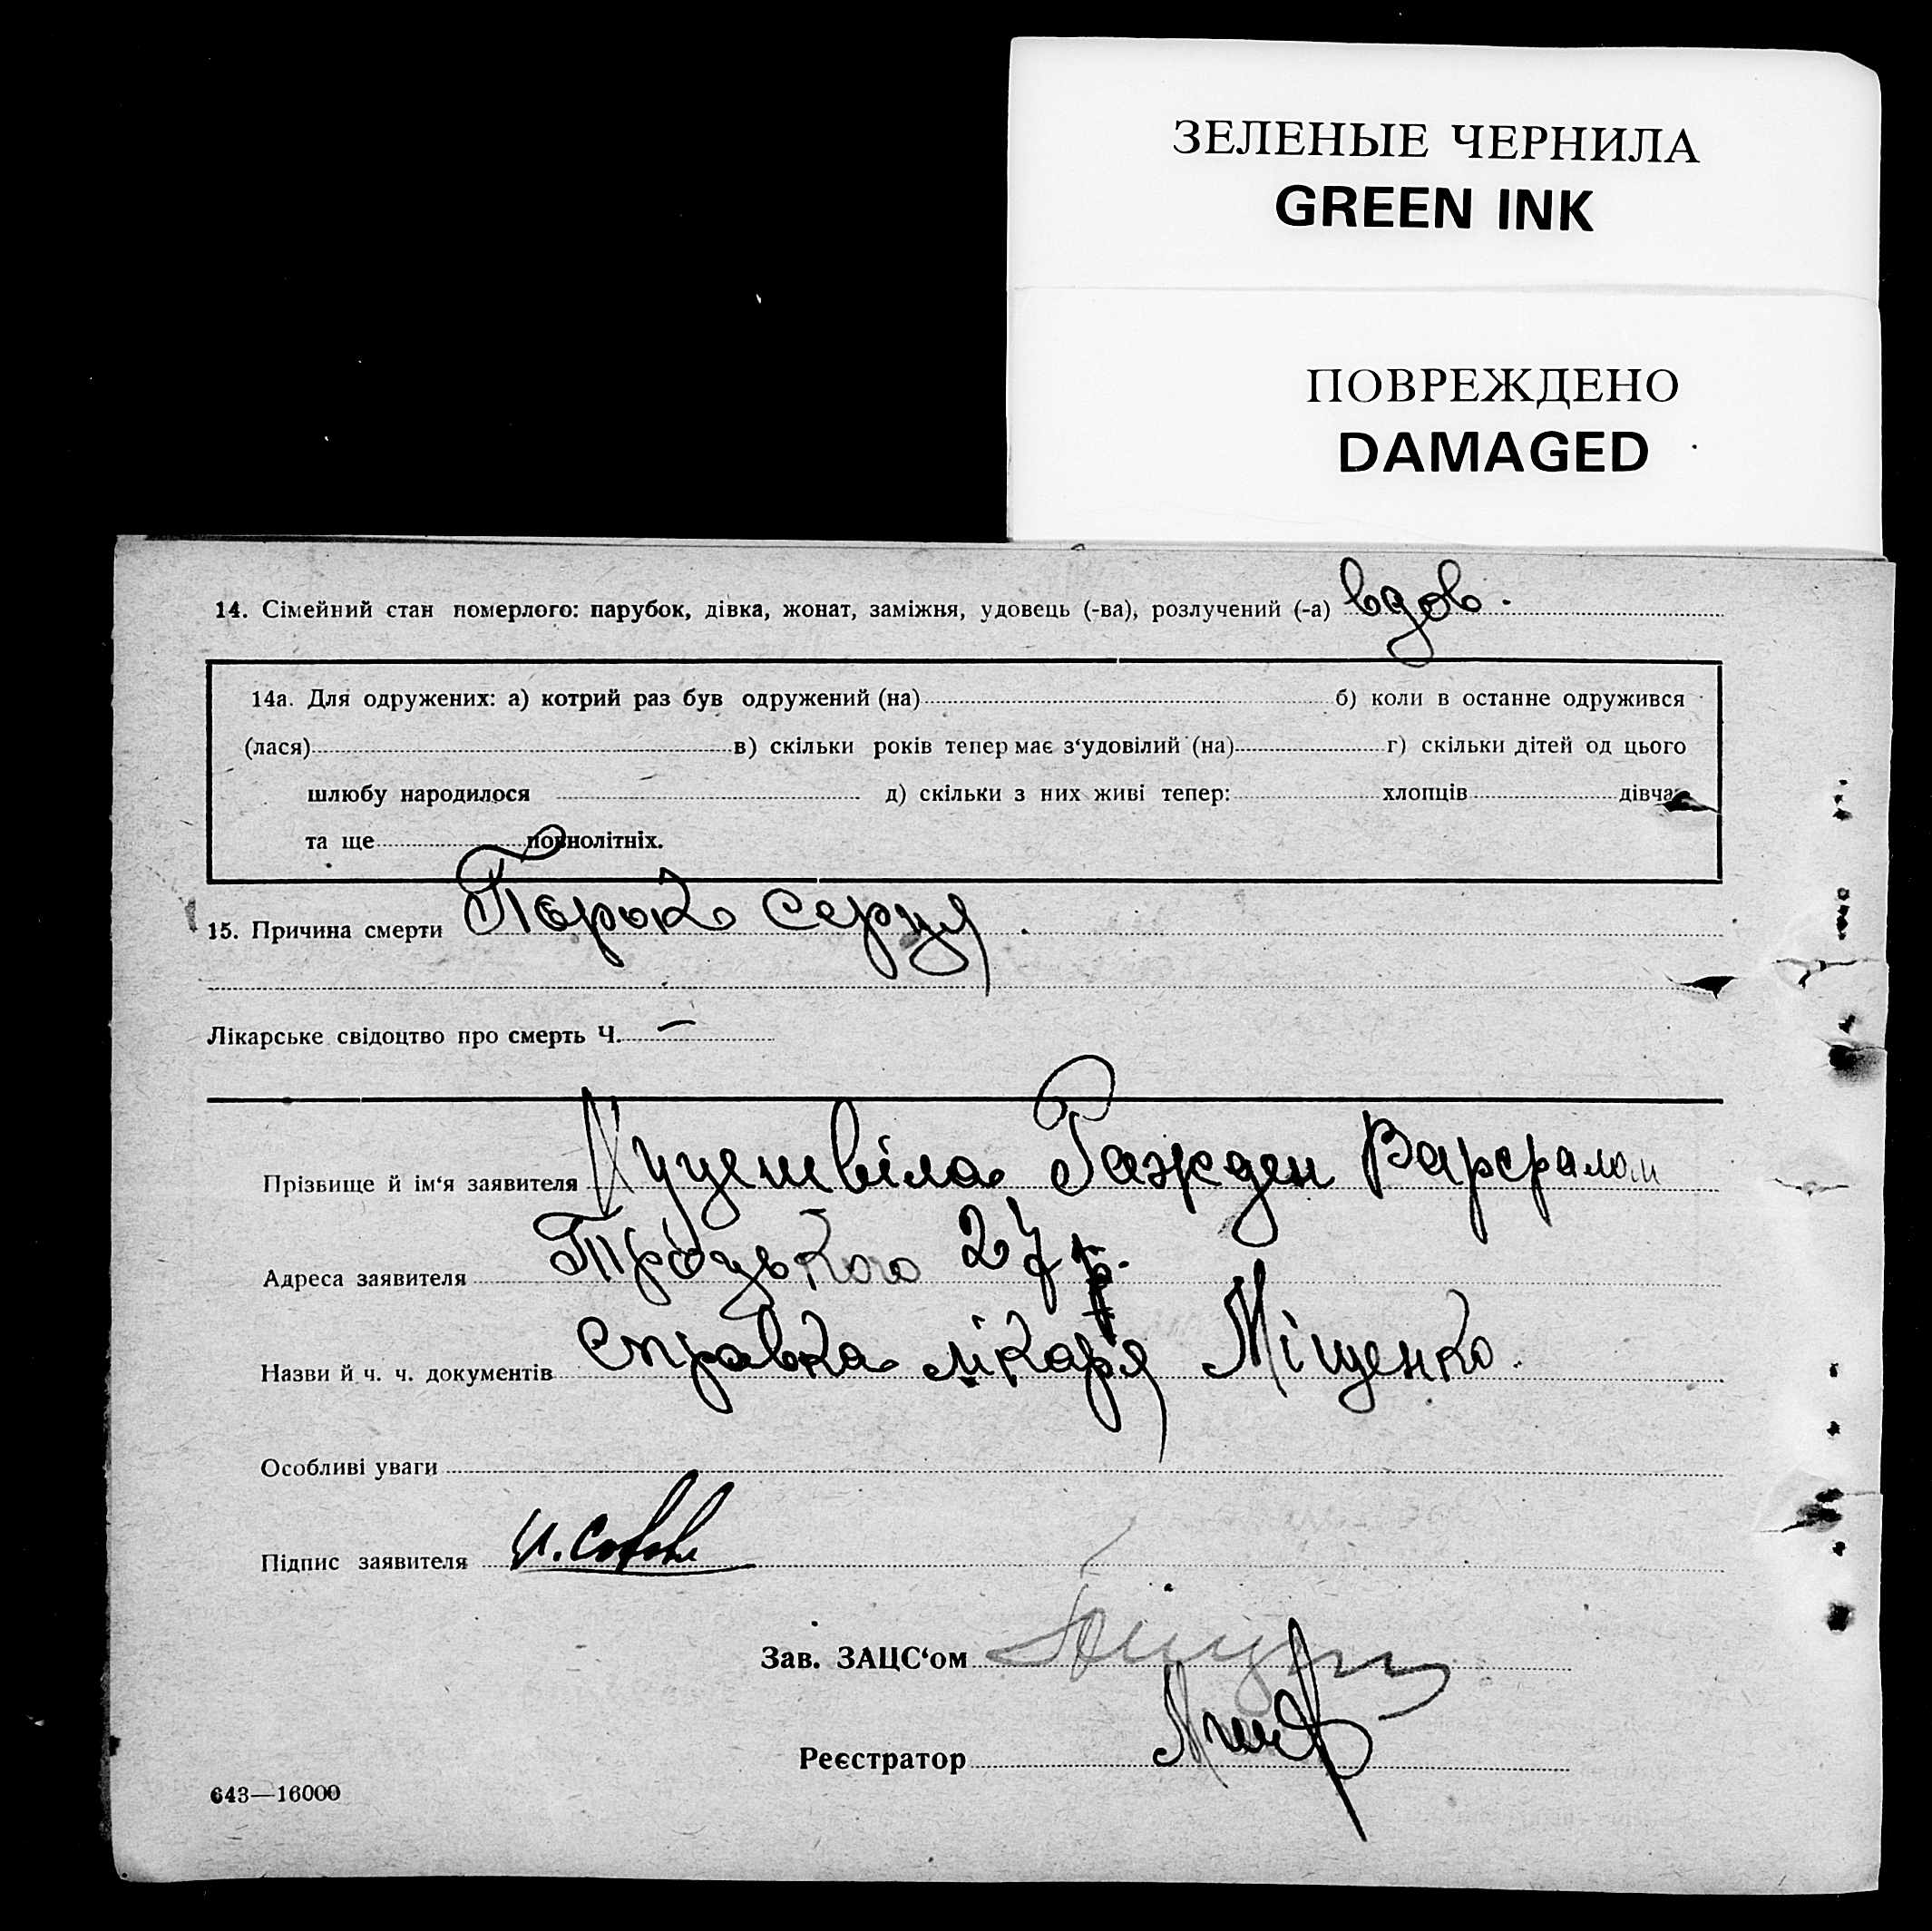 ЗЕЛЕНЫЕ ЧЕРНИЛА
GREEN INK
ПОВРЕЖДЕНО
DAMAGED
14. Сімейний стан померлого: парубок, дівка, жонат, заміжня, удовець (-ва), розлучений (-а) вдов.
14а. Для одружених: а) котрий раз був одружений (на) б) коли в останне одружився
(лася) в) скільки років тепер має з‘удовілий (на) г) скільки дітей од цього
шлюбу народилося д) скільки з них живі тепер: хлопців дівча
та ще повнолітніх.
15. Причина смерти Порок серця
Лікарське свідоцтво про смерть Ч. —
Прізвище й ім‘я заявителя Ражден
Адреса заявителя Троцького 27
Назви й ч. ч. документів Справка лікаря Міщенко.
Особливі уваги
Підпис заявителя
Зав. ЗАЦС‘ом
Реєстратор
643—16000